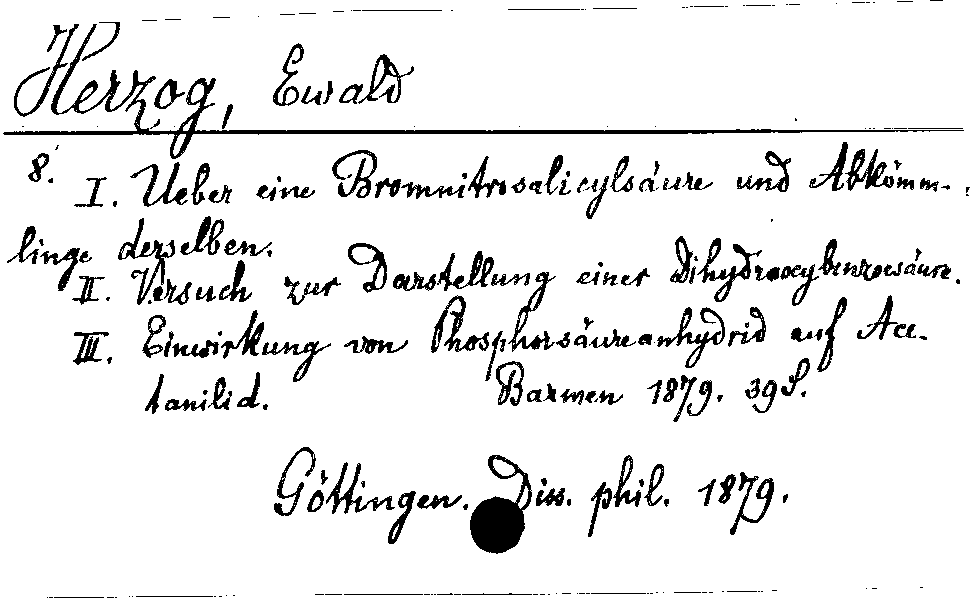 Herzog, Ewald
8. I. Ueber eine Bromnitrosalicylsäure und Abkömm-
linge derselben.
II. Versuch zur Darstellung einer Dihydrooxybenzoesäure.
III. Einwirkung von Phosphorsäureanhydrid auf Ace-
tanilid. Barmen 1879. 39 S.
Göttingen. Diss. phil. 1879.